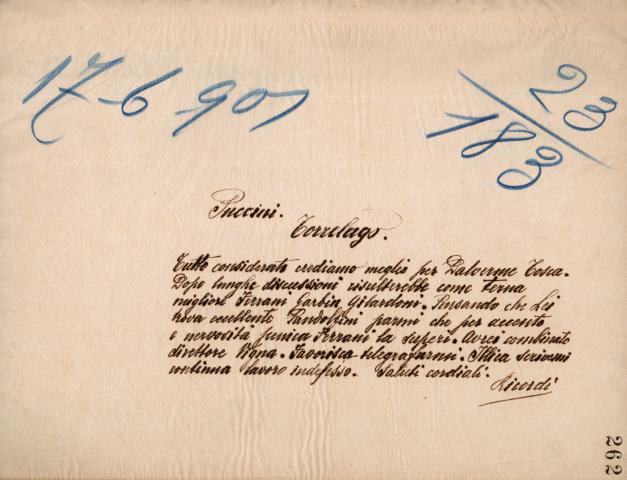 17-6-901
23/183
Puccini.
Torrelago.
Tutto considerato crediamo meglio per Dalverme Tosca.
Dopo lunghe discussioni risulterebbe come terna
migliore Ferrani Garbin Gilardoni. Pensando che Lei
trova eccellente Pandolfini parmi che per accento
e nervosità scenica Ferrani la superi. Avrei combinato
direttore Vigna. Favorisca telegrafarmi. Illica scrivemi
continua lavoro indefesso. Saluti cordiali.
Ricordi
262